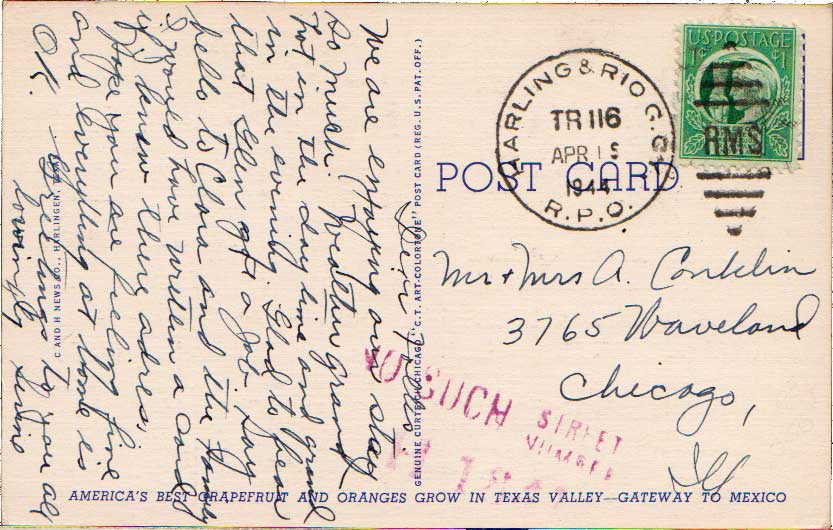 Dear Folks
We are enjoying our stay
so much. Weather grand
hot in the day time and grand
in the evening. Glad to hear
that Glen got a job. Say
hello to Clara and the family
I would have written a card
if I knew there adres,
Hope you are feeling fine
and everything at home is
OK.
Greetings to you all
lovingly
C AND H NEWS CO., HARLINGEN, TEXAS
GENUINE CURTEICH-CHICAGO "C.T. ART-COLORTONE" POST CARD (REG. U.S. PAT. OFF.)
POST CARD
HARLING & RIO G. CY
TR 116
APR
1944
R.P.O.
US POSTAGE
1¢ 1
RMS
Mr + Mrs A. Conklin
3765 Waveland
Chicago,
Ill
NO SUCH STREET
NUMBER
AMERICA'S BEST GRAPEFRUIT AND ORANGES GROW IN TEXAS VALLEY—GATEWAY TO MEXICO